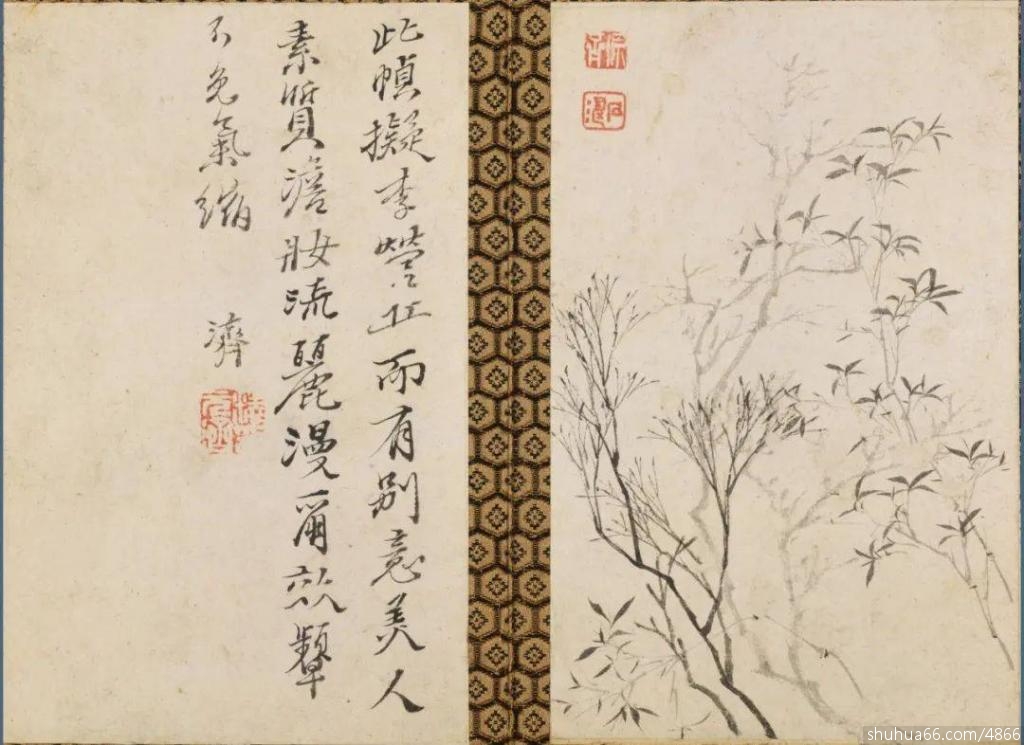 此幀擬李營丘而有别意美人
素質澹妝流麗漫爾效顰
不免氣繃
濟
shuhua66.com/4866